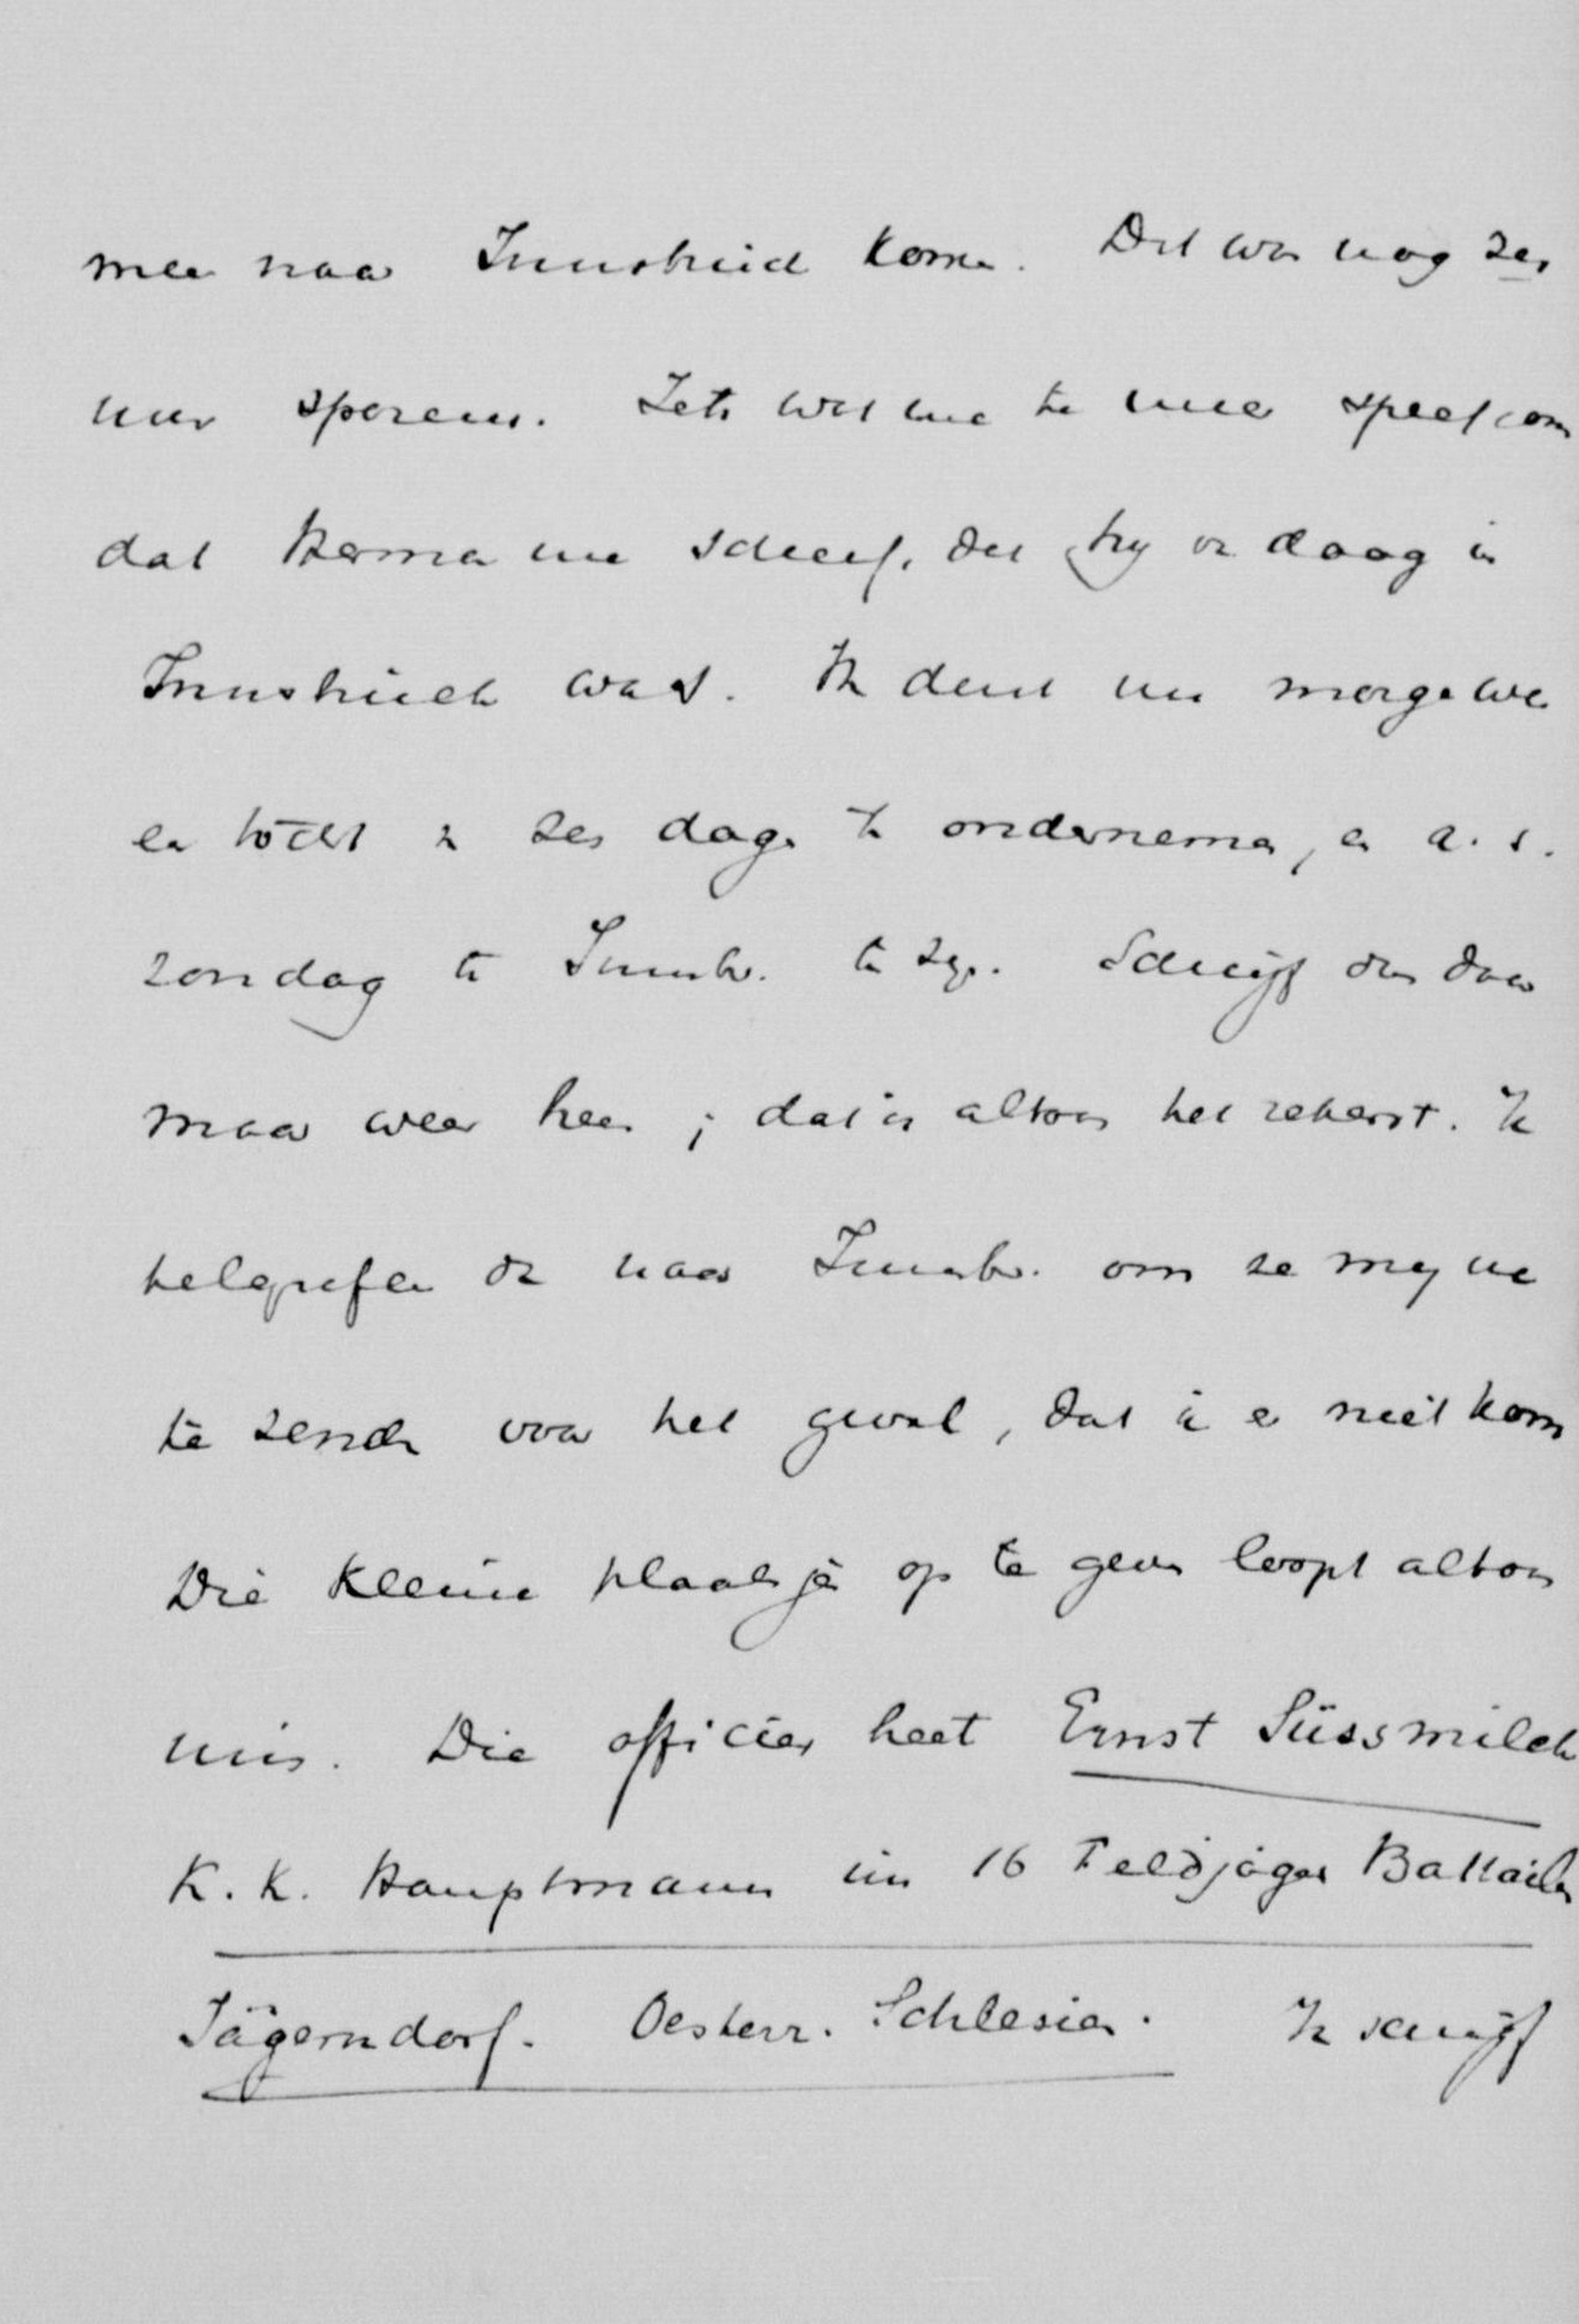 mee naar Innsbruck komen. Dat was nog zes
uur sporen. Iets wat me te meer speet om
dat Herman me schreef, dat hij vandaag in
Innsbruck was. Ik denk nu morgen weer
een tocht van zes dagen te ondernemen, en a.s.
zondag te Innsbr. te zijn. Schrijf dus daar
maar weer heen; dat is altoos het zekerst. Ik
telegrafeer dan naar Innsbr. om ze mij na
te zenden voor het geval, dat ik er niet kom
Die kleine plaatsjes op te geven loopt altoos
mis. Die officier heet Ernst Süssmilch
K. K. Hauptmann im 16 Feldjäger Bataillon
Jägerndorf. Oesterr. Schlesien. Ik schrijf